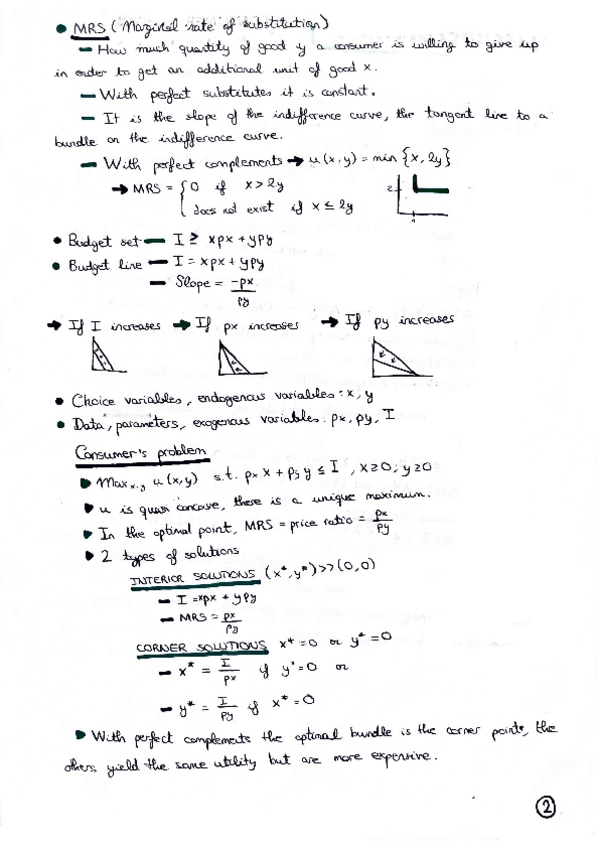 • MRS (Marginal rate of substitution)
— How much quantity of good y a consumer is willing to give up
in order to get an additional unit of good x.
— With perfect substitutes it is constant.
— It is the slope of the indifference curve, the tangent line to a
bundle on the indifference curve.
— With perfect complements → u(x,y) = min {x, 2y}
→ MRS = { 0 if x > 2y
does not exist if x ≤ 2y
• Budget set — I ≥ xpx + ypy
• Budget line — I = xpx + ypy
— Slope = -px/py
→ If I increases → If px increases → If py increases
• Choice variables, endogenous variables: x, y
• Data, parameters, exogenous variables: px, py, I
Consumer's problem
▶ Max x,y u(x,y) s.t. px x + py y ≤ I, x≥0; y≥0
▶ u is quasi concave, there is a unique maximum.
▶ In the optimal point, MRS = price ratio = px/py
▶ 2 types of solutions
INTERIOR SOLUTIONS (x*, y*) >> (0,0)
— I = xpx + ypy
— MRS = px/py
CORNER SOLUTIONS x* = 0 or y* = 0
— x* = I/px if y* = 0 or
— y* = I/py if x* = 0
▶ With perfect complements the optimal bundle is the corner points, the
others yield the same utility but are more expensive.
2